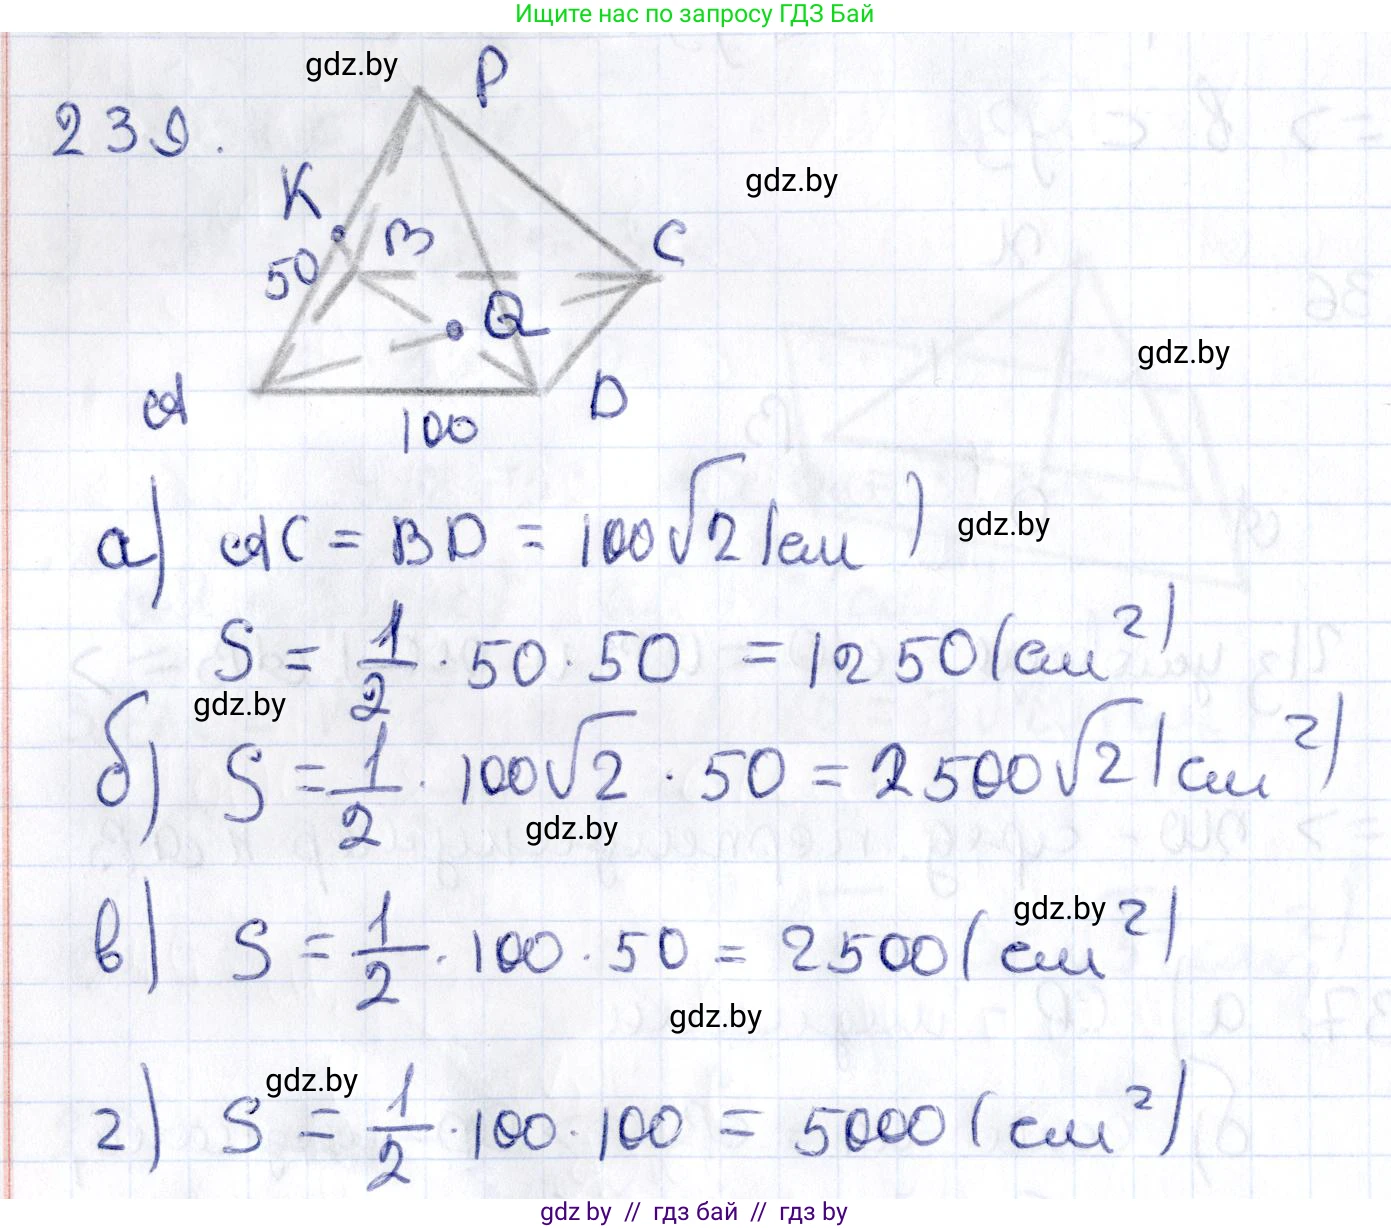 Ищите нас по запросу ГДЗ Бай
gdz.by
P
239.
K
gdz.by
B
C
50
Q
gdz.by
A
D
100
а) AC = BD = 100√2 (см)
gdz.by
S = 1/2 · 50 · 50 = 1250 (см²)
gdz.by
б) S = 1/2 · 100√2 · 50 = 2500√2 (см²)
gdz.by
в) S = 1/2 · 100 · 50 = 2500 (см²)
gdz.by
gdz.by
gdz.by
г) S = 1/2 · 100 · 100 = 5000 (см²)
gdz.by // гдз бай // гдз by